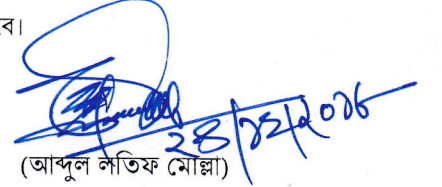 বে।
২৪/১২/২০১৮
(আব্দুল লতিফ মোল্লা)